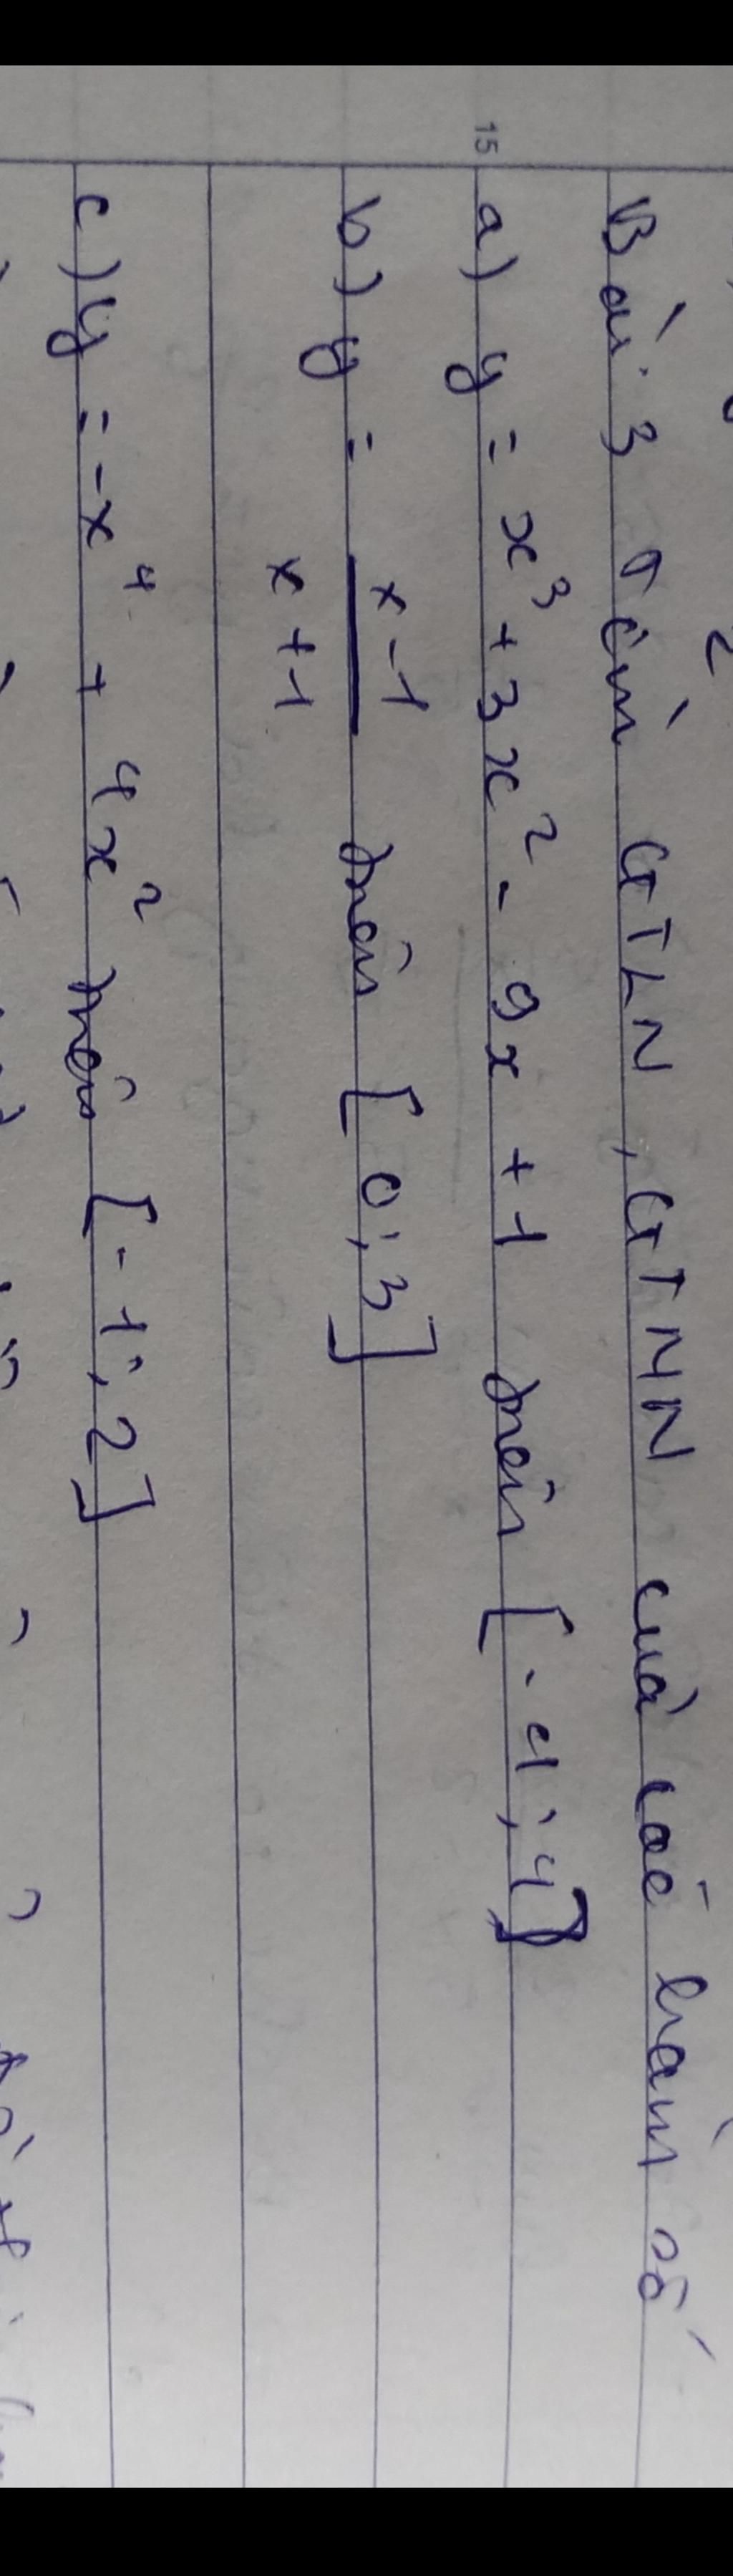 Bài 3 Tìm GTLN, GTNN của các hàm số
15
a) y = x³ + 3x² - 9x + 1 trên [-4; 4]
b) y = \frac{x-1}{x+1} trên [0; 3]
c) y = -x⁴ + 4x² trên [-1; 2]